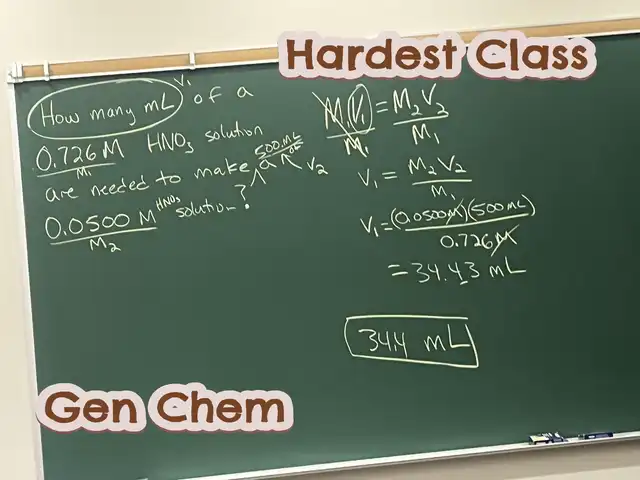 Hardest Class
How many mL V₁ of a
0.726 M HNO₃ solution
M₁
500. mL of
are needed to make a V₂
0.0500 M HNO₃ solution?
M₂
M₁V₁ = M₂V₂
M₁ M₁
V₁ = M₂V₂
M₁
V₁ = (0.0500 M)(500 mL)
0.726 M
= 34.43 mL
34.4 mL
Gen Chem